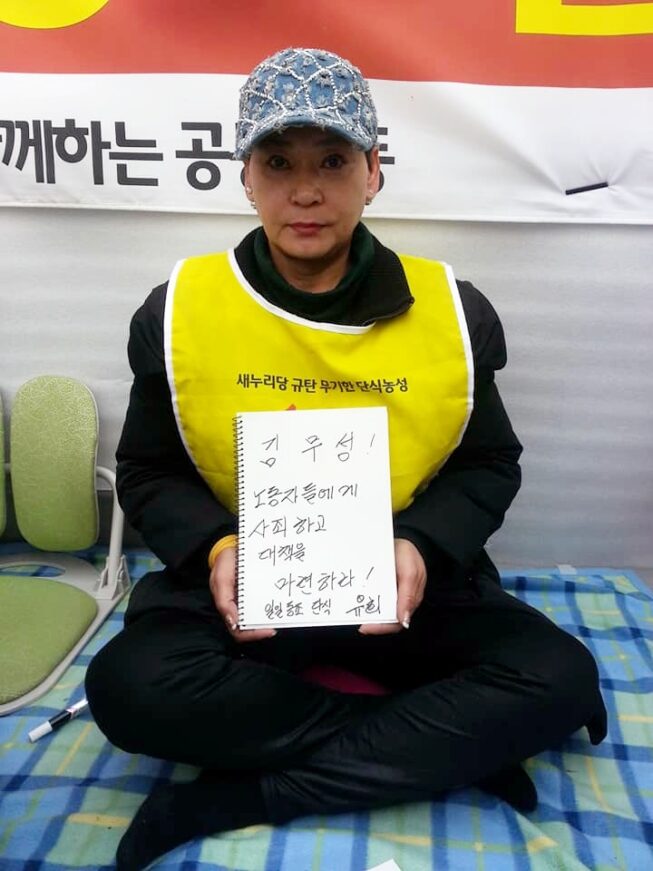 께하는 공
새누리당 규탄 무기한 단식농성
김 무 성!
노동자들에게
사죄하고
대책을
마련하라!
일일 동조 단식 유희